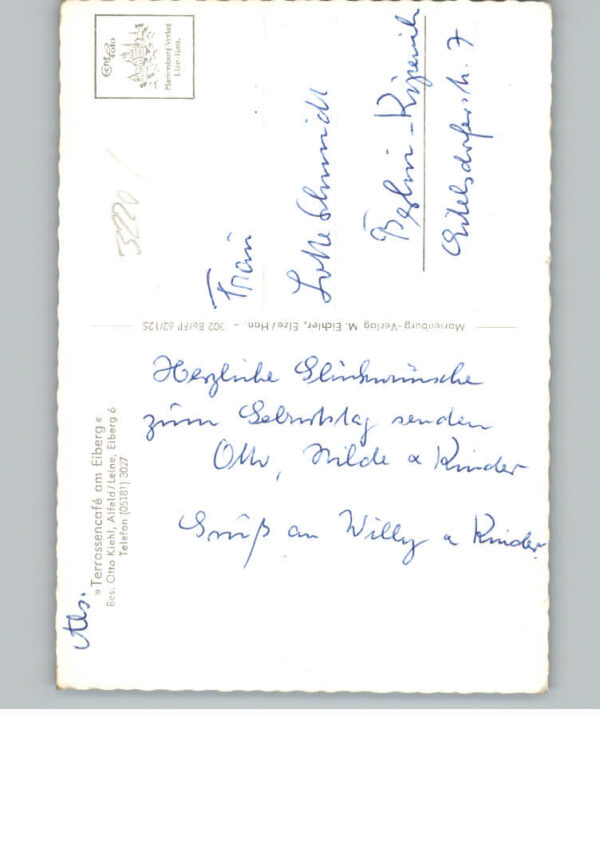 Echt Foto
Marienburg Verlag
Elze-Han.
3220/
Frau
Lotte Schmidt
Berlin-Köpenick
7
Marienburg-Verlag M. Eichler, Elze/Han. - 302 Be/FP 62/125
»Terrassencafé am Eiberg«
Bes. Otto Kiehl, Alfeld/Leine, Eiberg 6
Telefon (05181) 3027
Abs.
Herzliche Glückwünsche
zum Geburtstag senden
Otto, Hilde u Kinder
Gruß an Willy u Kinder